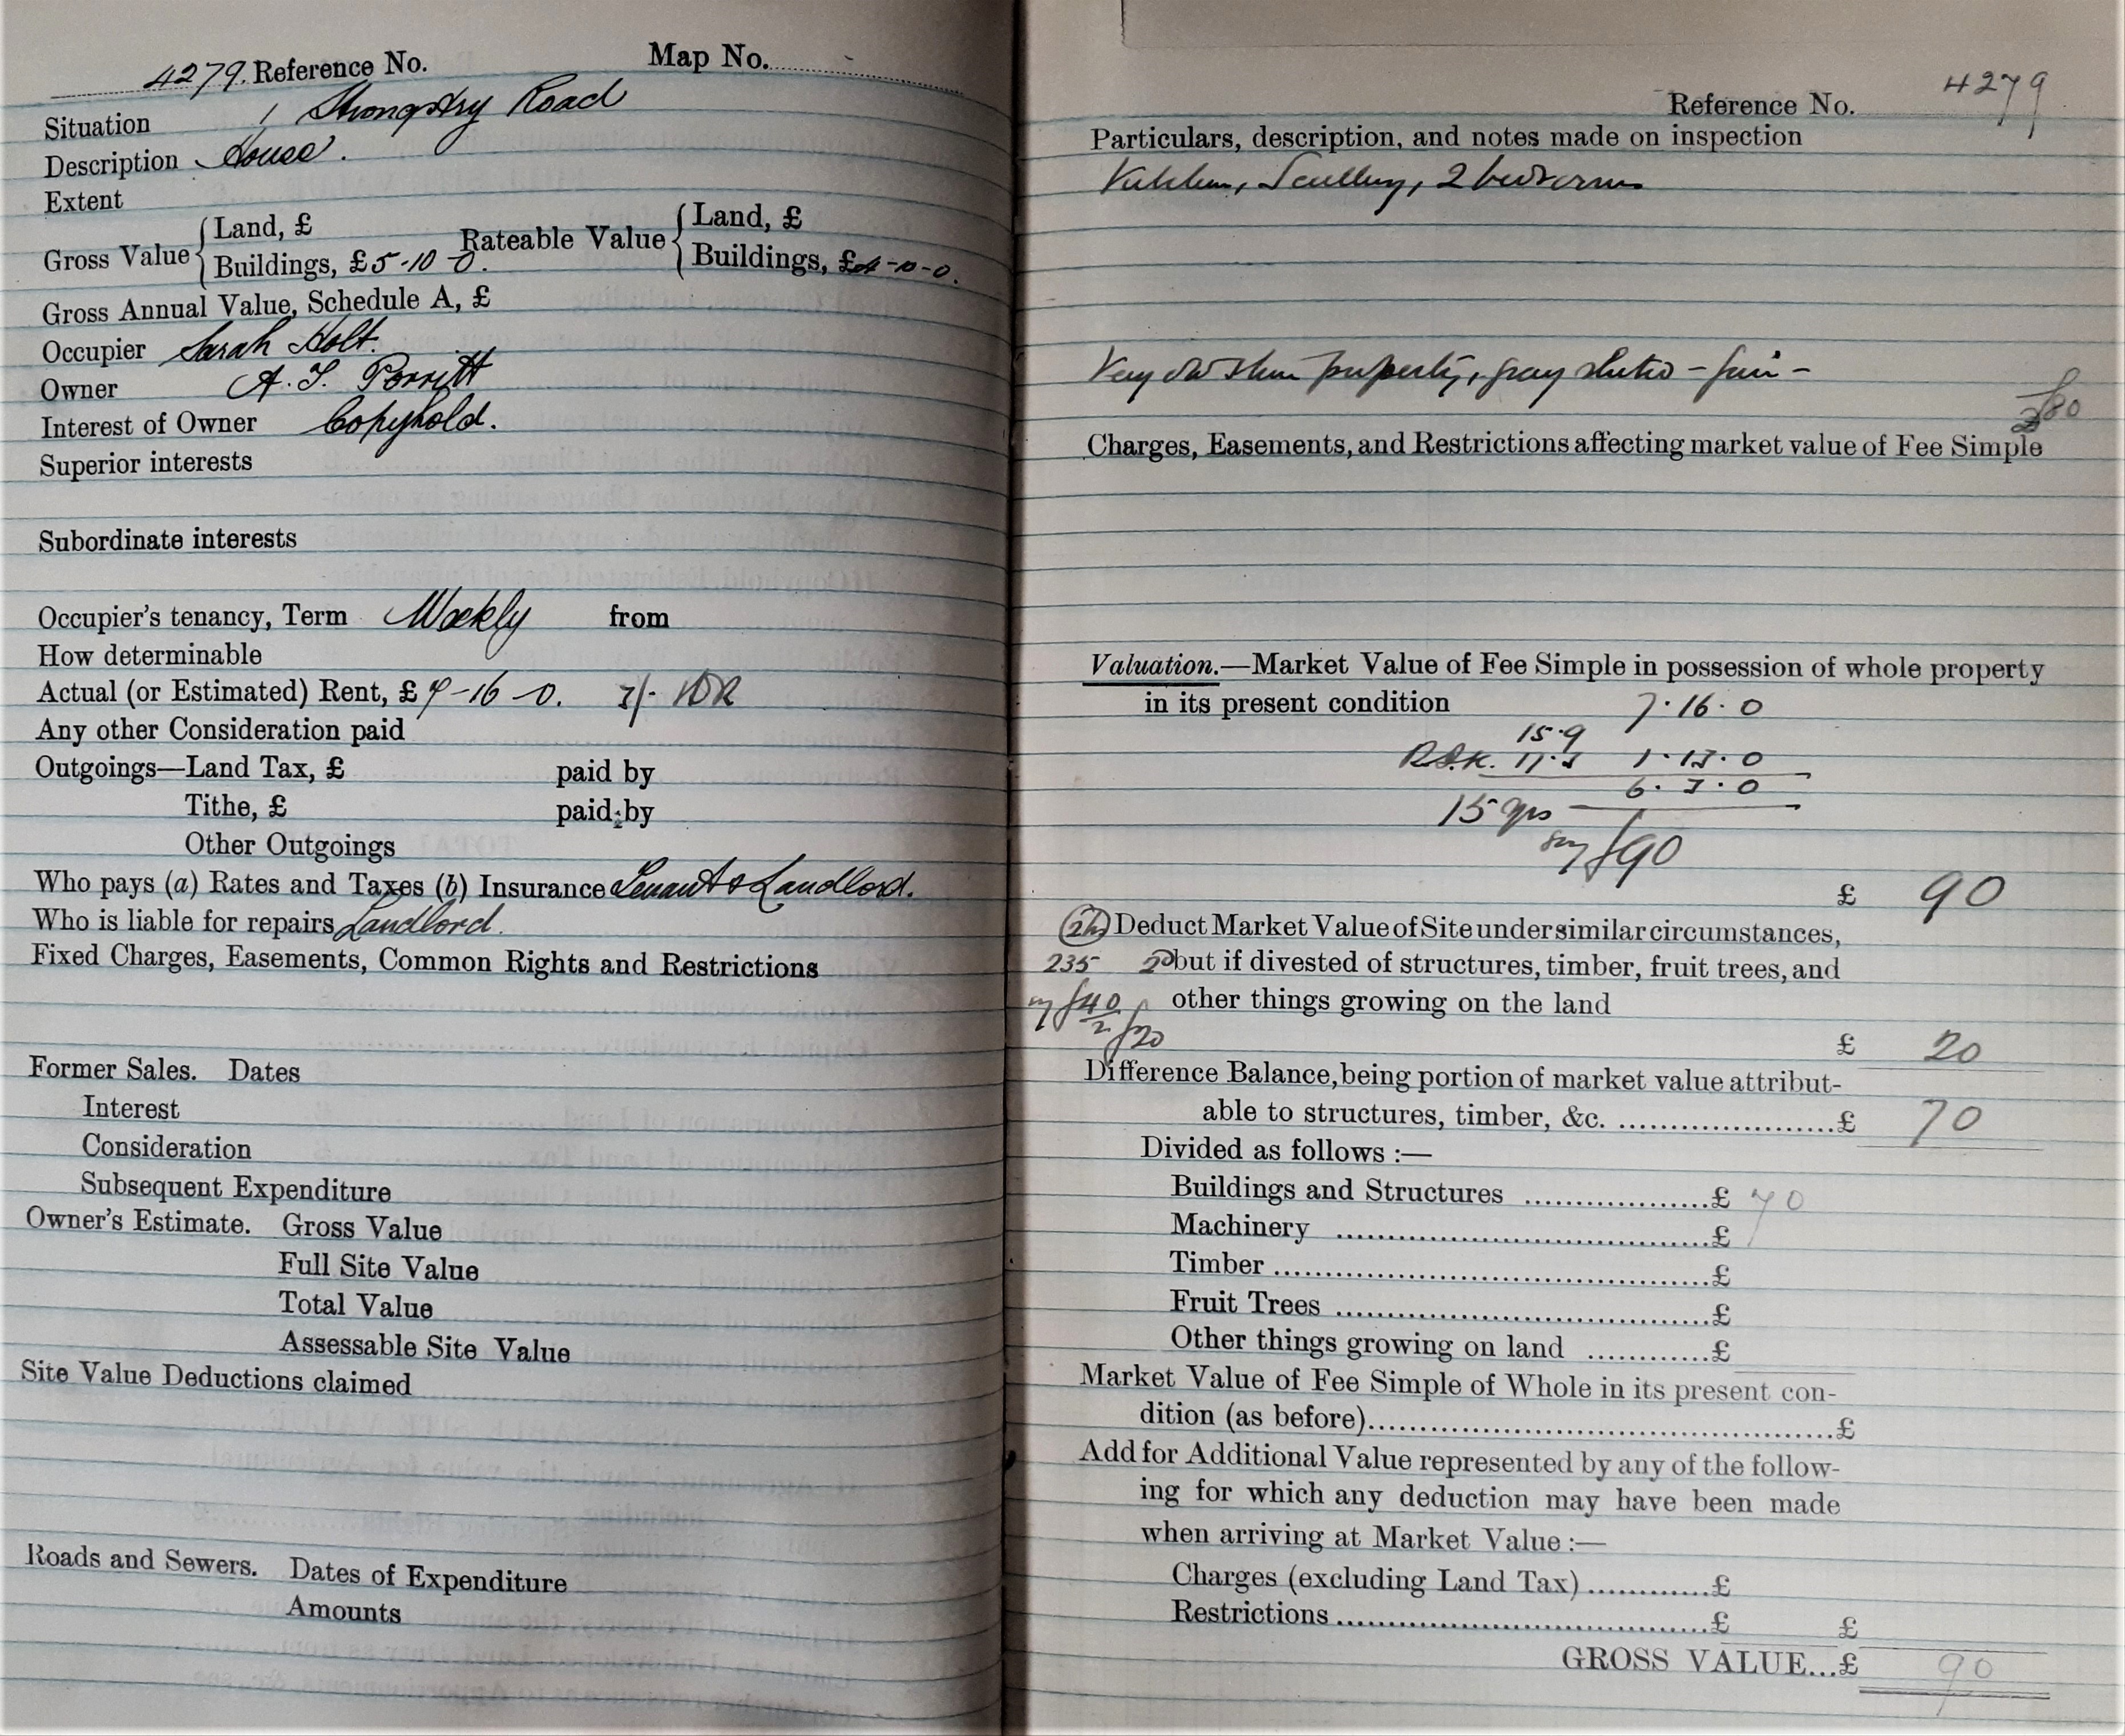 4279. Reference No. Map No.
Situation 1 Strongstry Road
Description House.
Extent
Gross Value { Land, £ Rateable Value { Land, £
Buildings, £5-10-0. Buildings, £4-10-0.
Gross Annual Value, Schedule A, £
Occupier Sarah Holt.
Owner A. T. Porritt
Interest of Owner Copyhold.
Superior interests
Subordinate interests
Occupier's tenancy, Term Weekly from
How determinable
Actual (or Estimated) Rent, £7-16-0. 3/-
Any other Consideration paid
Outgoings—Land Tax, £ paid by
Tithe, £ paid by
Other Outgoings
Who pays (a) Rates and Taxes (b) Insurance Tenant & Landlord.
Who is liable for repairs Landlord.
Fixed Charges, Easements, Common Rights and Restrictions
Former Sales. Dates
Interest
Consideration
Subsequent Expenditure
Owner's Estimate. Gross Value
Full Site Value
Total Value
Assessable Site Value
Site Value Deductions claimed
Roads and Sewers. Dates of Expenditure
Amounts
Reference No. 4279
Particulars, description, and notes made on inspection
Kitchen, Scullery, 2 bedrooms
Very old stone property, gray slates – fair –
£80
Charges, Easements, and Restrictions affecting market value of Fee Simple
Valuation.—Market Value of Fee Simple in possession of whole property
in its present condition 7.16.0
15.9
17.3 1.13.0
6.3.0
15 yrs
say £90
£ 90
Deduct Market Value of Site under similar circumstances,
235 but if divested of structures, timber, fruit trees, and
£40 other things growing on the land
2 £20
£ 20
Difference Balance, being portion of market value attribut-
able to structures, timber, &c. ....................£ 70
Divided as follows :—
Buildings and Structures ................£ 70
Machinery ................................£
Timber ................................£
Fruit Trees ................................£
Other things growing on land ............£
Market Value of Fee Simple of Whole in its present con-
dition (as before)................................£
Add for Additional Value represented by any of the follow-
ing for which any deduction may have been made
when arriving at Market Value :—
Charges (excluding Land Tax)............£
Restrictions................................£ £
GROSS VALUE...£ 90